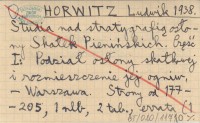 HORWITZ Ludwik 1938.
Studia nad stratygrafią osło-
ny Skałek Pienińskich. Część
I. Podział osłony skałkowej
i rozmieszczenie jej ogniw.
- Warszawa. Stron od 177-
-205, 1 nlb, 2 tabl, errata /1